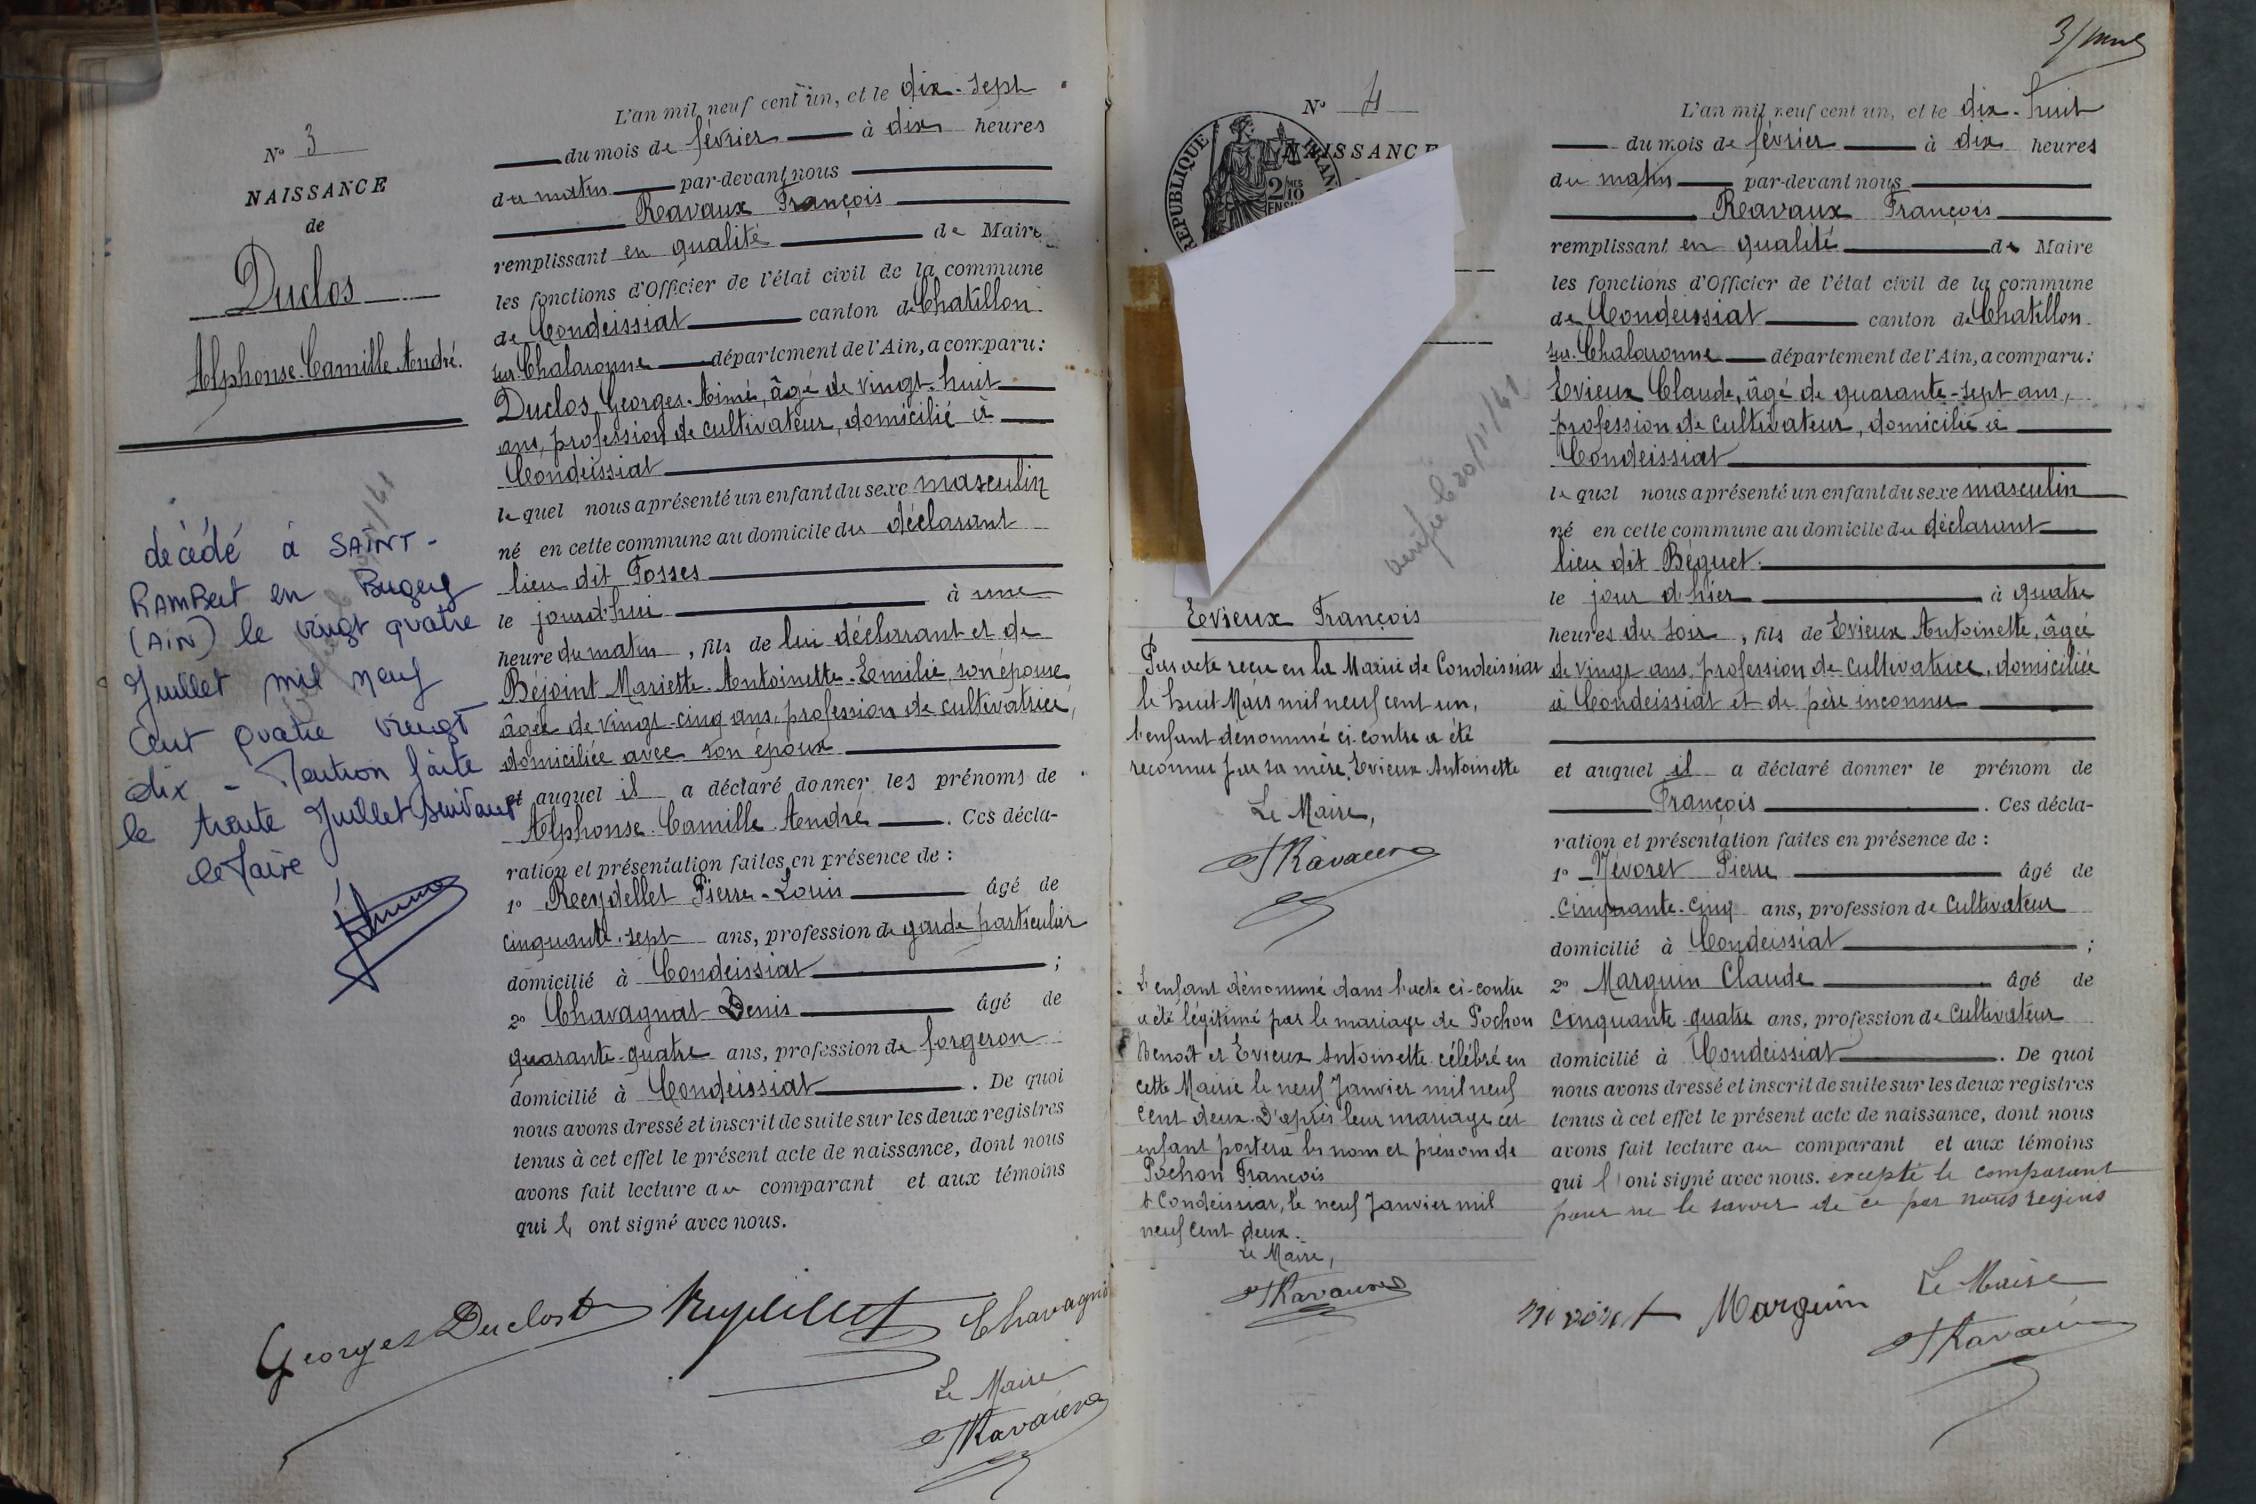 N° 3
NAISSANCE
de
Duclos
Alphonse-Camille-André.
décédé à SAINT-
RAMBERT en Bugey
(AIN) le vingt quatre
Juillet mil neuf
cent quatre vingt
dix - Mention faite
le trente Juillet suivant
le Maire
L'an mil neuf cent un, et le dix-sept
du mois de février à dix heures
du matin par-devant nous
Ravaux François
remplissant en qualité de Maire
les fonctions d'Officier de l'état civil de la commune
de Condeissiat canton de Chatillon
sur-Chalaronne département de l'Ain, a comparu:
Duclos Georges-Aimé, âgé de vingt-huit
ans, profession de cultivateur, domicilié à
Condeissiat
lequel nous a présenté un enfant du sexe masculin
né en cette commune au domicile du déclarant
lieu dit Fosses
le jourd'hui à une
heure du matin, fils de lui déclarant et de
Béjoint Mariette-Antoinette-Emilie, son épouse
âgée de vingt-cinq ans, profession de cultivatrice,
domiciliée avec son époux
et auquel il a déclaré donner les prénoms de
Alphonse-Camille-André. Ces décla-
ration et présentation faites en présence de :
1° Reydellet Pierre-Louis âgé de
cinquante-sept ans, profession de garde particulier
domicilié à Condeissiat ;
2° Chavagnat Denis âgé de
quarante-quatre ans, profession de forgeron
domicilié à Condeissiat. De quoi
nous avons dressé et inscrit de suite sur les deux registres
tenus à cet effet le présent acte de naissance, dont nous
avons fait lecture au comparant et aux témoins
qui l'ont signé avec nous.
Georges Duclos Reydellet Chavagna
Le Maire
F Ravaux
N° 4
NAISSANCE
RÉPUBLIQUE FRAN
2/10
vérifié le 20/1/41
Evieux François
Par acte reçu en la Mairie de Condeissiat
le huit Mars mil neuf cent un,
l'enfant dénommé ci-contre a été
reconnu par sa mère Evieux Antoinette
Le Maire,
F Ravaux
L'enfant dénommé dans l'acte ci-contre
a été légitimé par le mariage de Pochon
Benoît et Evieux Antoinette célébré en
cette Mairie le neuf Janvier mil neuf
cent deux. D'après leur mariage cet
enfant portera les nom et prénom de
Pochon François
A Condeissiat, le neuf Janvier mil
neuf cent deux.
Le Maire,
F Ravaux
L'an mil neuf cent un, et le dix-huit
du mois de février à dix heures
du matin par-devant nous
Ravaux François
remplissant en qualité de Maire
les fonctions d'Officier de l'état civil de la commune
de Condeissiat canton de Chatillon
sur-Chalaronne département de l'Ain, a comparu:
Evieux Claude, âgé de quarante-sept ans,
profession de cultivateur, domicilié à
Condeissiat
lequel nous a présenté un enfant du sexe masculin
né en cette commune au domicile du déclarant
lieu dit Béguet.
le jour d'hier à quatre
heures du soir, fils de Evieux Antoinette, âgée
de vingt ans, profession de cultivatrice, domiciliée
à Condeissiat et de père inconnu
et auquel il a déclaré donner le prénom de
François. Ces décla-
ration et présentation faites en présence de :
1° Névoret Pierre âgé de
cinquante-cinq ans, profession de cultivateur
domicilié à Condeissiat ;
2° Marguin Claude âgé de
cinquante-quatre ans, profession de cultivateur
domicilié à Condeissiat. De quoi
nous avons dressé et inscrit de suite sur les deux registres
tenus à cet effet le présent acte de naissance, dont nous
avons fait lecture au comparant et aux témoins
qui l'ont signé avec nous. excepté le comparant
pour ne le savoir de ce par nous requis
Névoret Marguin Le Maire
F Ravaux